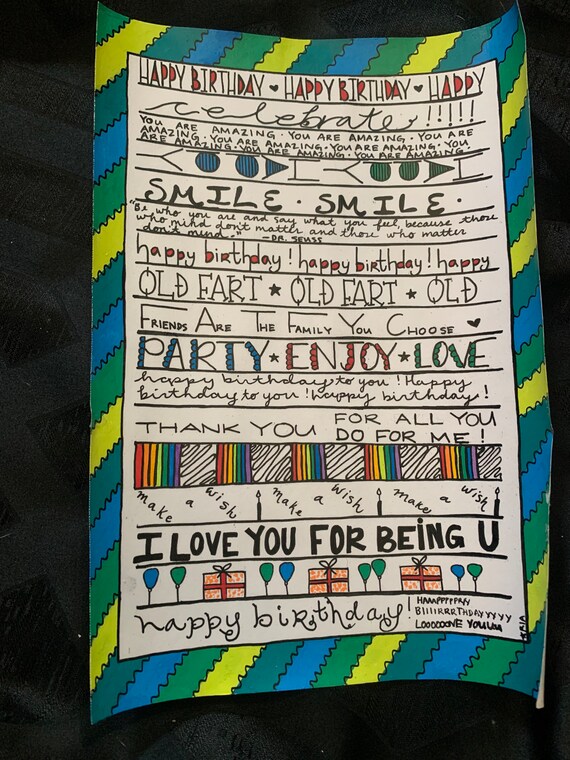 HAPPY BIRTHDAY ♥ HAPPY BIRTHDAY ♥ HAPPY
celebrate!!!!!
YOU ARE AMAZING · YOU ARE AMAZING · YOU ARE
AMAZING · YOU ARE AMAZING · YOU ARE AMAZING · YOU
ARE AMAZING · YOU ARE AMAZING · YOU ARE AMAZING
SMILE · SMILE ·
"Be who you are and say what you feel, because those
who mind don't matter and those who matter
don't mind."
- DR. SEUSS
happy birthday! happy birthday! happy
OLD FART ★ OLD FART ★ OLD
FRIENDS ARE THE FAMILY YOU CHOOSE ♥
PARTY ★ ENJOY ★ LOVE
happy birthday to you! Happy
birthday to you! happy birthday!
THANK YOU FOR ALL YOU
DO FOR ME!
make a wish make a wish make a wish
I LOVE YOU FOR BEiNG U
happy birthday!
HAAPPPPPPYY
BIIIIRRRTHDAYYYYY
LOOOOOVE YOUUU